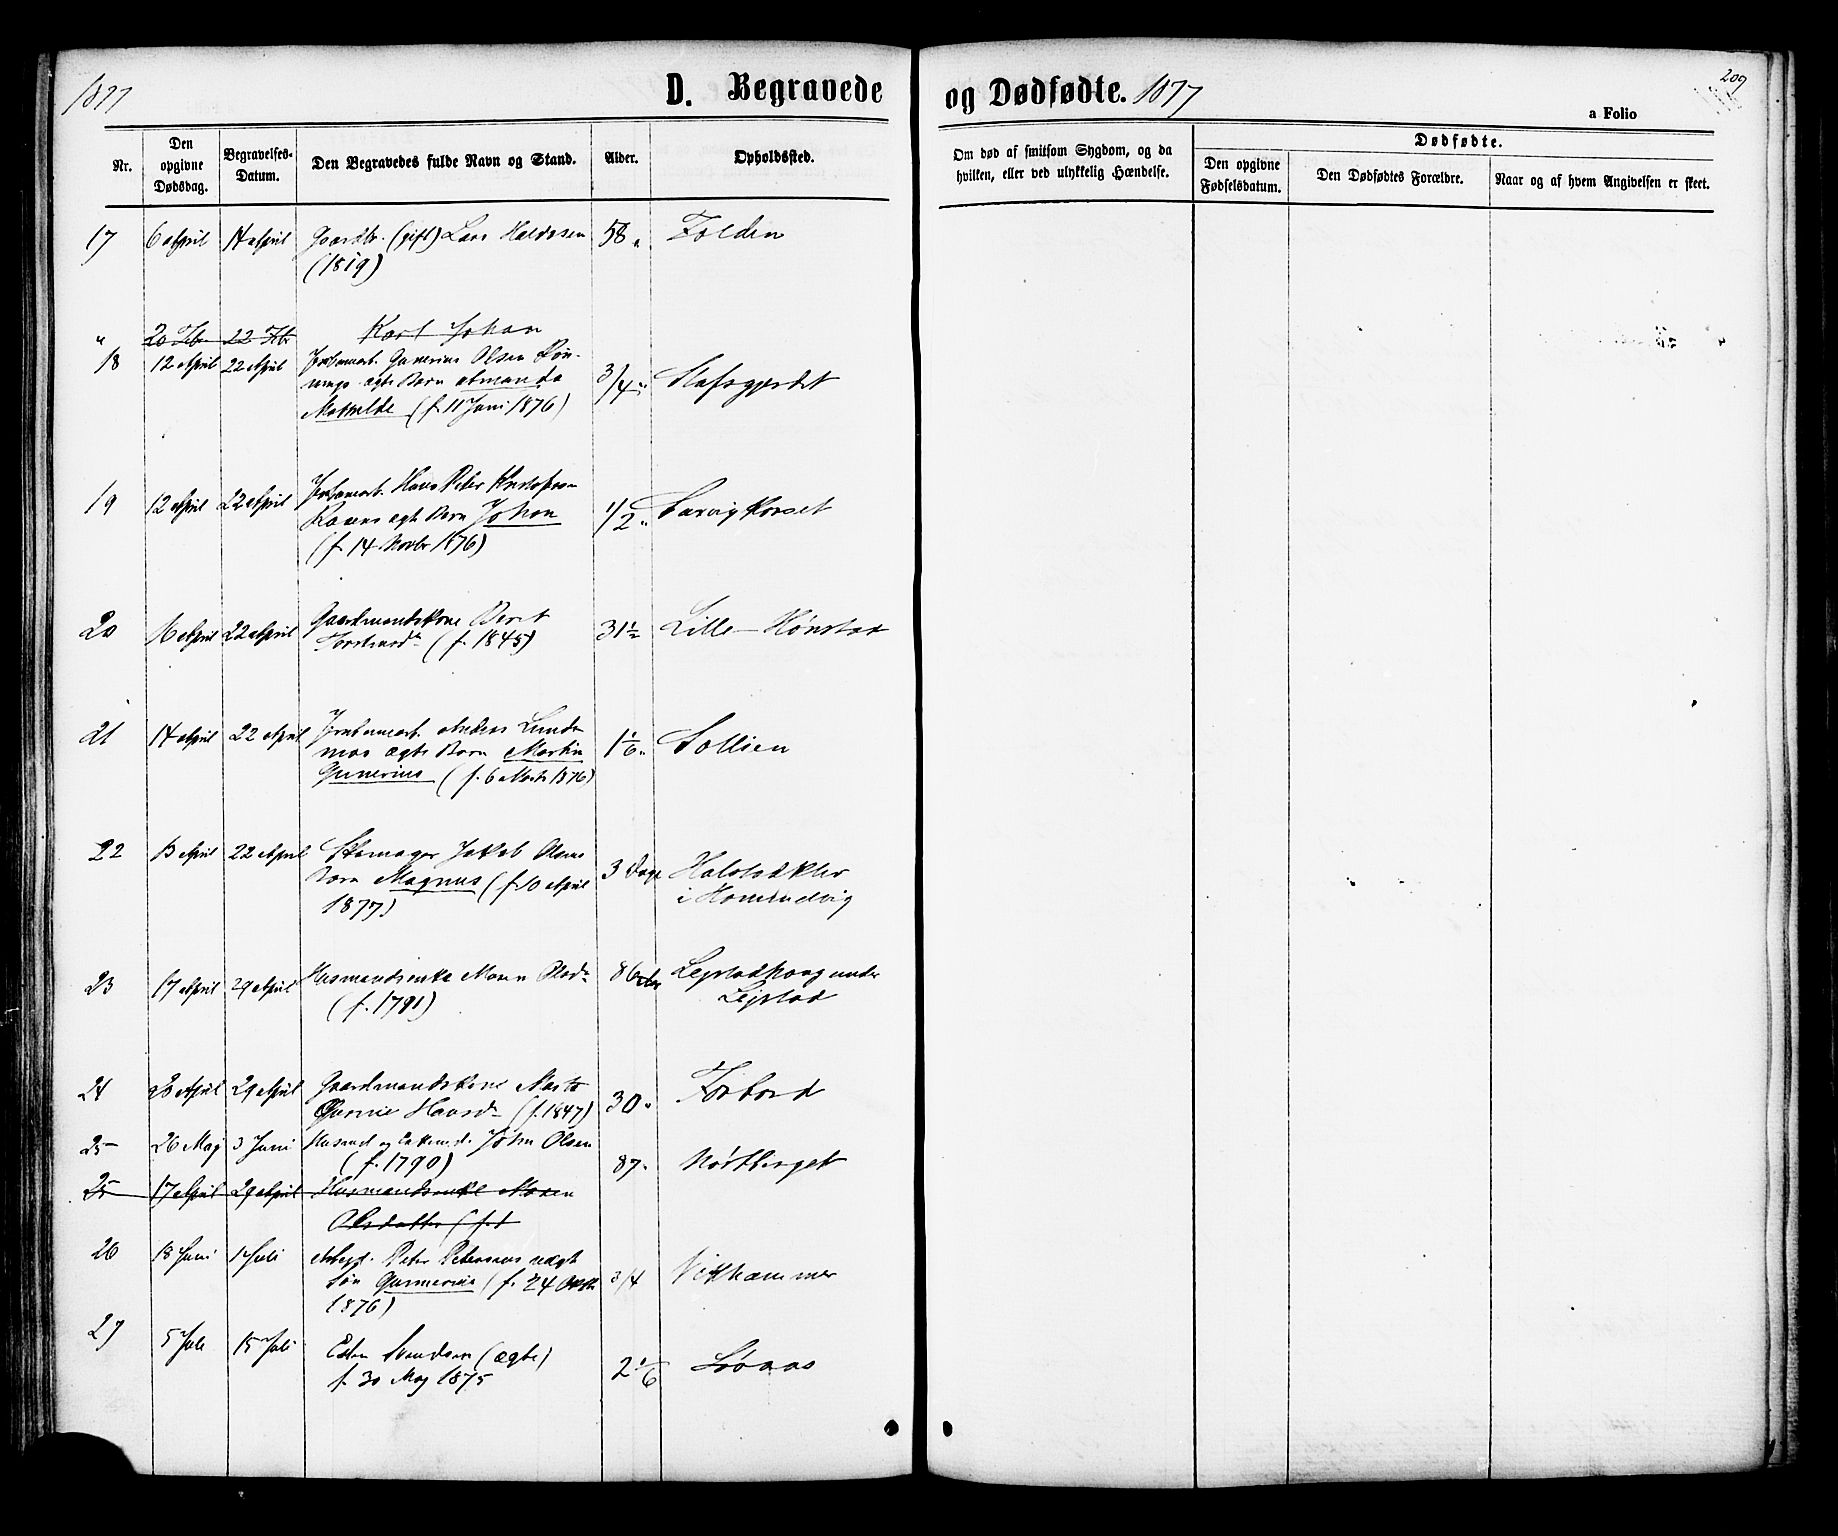 1877
D. Begravede
og Dødfødte. 1877
209
a Folio
Nr.
Den opgivne Dødsdag.
Begravelses-Datum.
Den Begravedes fulde Navn og Stand.
Alder.
Opholdssted.
Om død af smitsom Sygdom, og da hvilken, eller ved ulykkelig Hændelse.
Dødfødte.
Den opgivne Fødselsdatum.
Den Dødfødtes Forældre.
Naar og af hvem Angivelsen er skeet.
17 6 April 14 April Gaardbr. (gift) Lars Haldosen 58 " Folden
(1819)
" 20 Febr 22 Febr Karl Johan
18 12 April 22 April Jernbanearb. Gunerius Olsen Røn-
nings ægte Barn Amanda 3/4 "
Mathilde (f. 11 Juni 1876)
19 12 April 22 April Jernbanearb. Hans Peter
ægte Barn Johan 1/2 "
(f. 14 Novbr 1876)
20 16 April 22 April Gaardmandskone Berit 31 1/2 Lille-Hønstad
(f. 1845)
21 14 April 22 April Jernbanearb. Anders Lunde-
moe ægte Barn Martin 1 1/6 " Sollien
Gunerius (f. 6 Marts 1876)
22 13 April 22 April Skomager Jakob Olsens
Barn Magnus (f. 10 April 3 Dage
1877) i Hommelvig
23 17 April 29 April Husmandsenke Maren Olsd. 86 Aar Lejstadhaug under
(f. 1791) Lejstad
24 20 April 29 April Gaardmandskone Marta
Gurine Hansd. (f. 1847) 30 " Forbord
25 26 Maj 3 Juni John Olsen
(f. 1790) 87 "
25 17 April 29 April Husmandsenke Maren
Olsdatter (f. 1
26 18 Juni 1 Juli Arbejd. Peter Petersens uægt
Søn Gunnerius (f. 24 3/4 Vikhammer
1876)
27 5 Juli 15 Juli Svendsen (ægte)
f. 30 Maj 1875 2 1/6